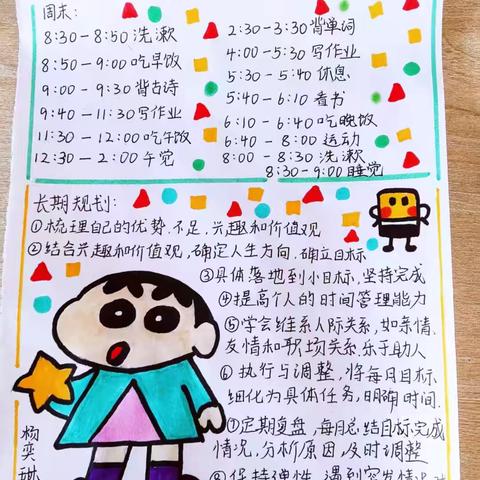 周末：
8:30-8:50 洗漱
8:50-9:00 吃早饭
9:00-9:30 背古诗
9:40-11:30 写作业
11:30-12:00 吃午饭
12:30-2:00 午觉
2:30-3:30 背单词
4:00-5:30 写作业
5:30-5:40 休息
5:40-6:10 看书
6:10-6:40 吃晚饭
6:40-8:00 运动
8:00-8:30 洗漱
8:30-9:00 睡觉
长期规划：
①梳理自己的优势、不足，兴趣和价值观
②结合兴趣和价值观，确定人生方向，确立目标
③具体落地到小目标，坚持完成
④提高个人的时间管理能力
⑤学会维系人际关系，如亲情、
友情和职场关系，乐于助人
⑥执行与调整，将每日目标
细化为具体任务，明确时间.
⑦定期复盘，每月总结目标完成
情况，分析原因，及时调整
⑧保持弹性，遇到突发情况
杨奕琳